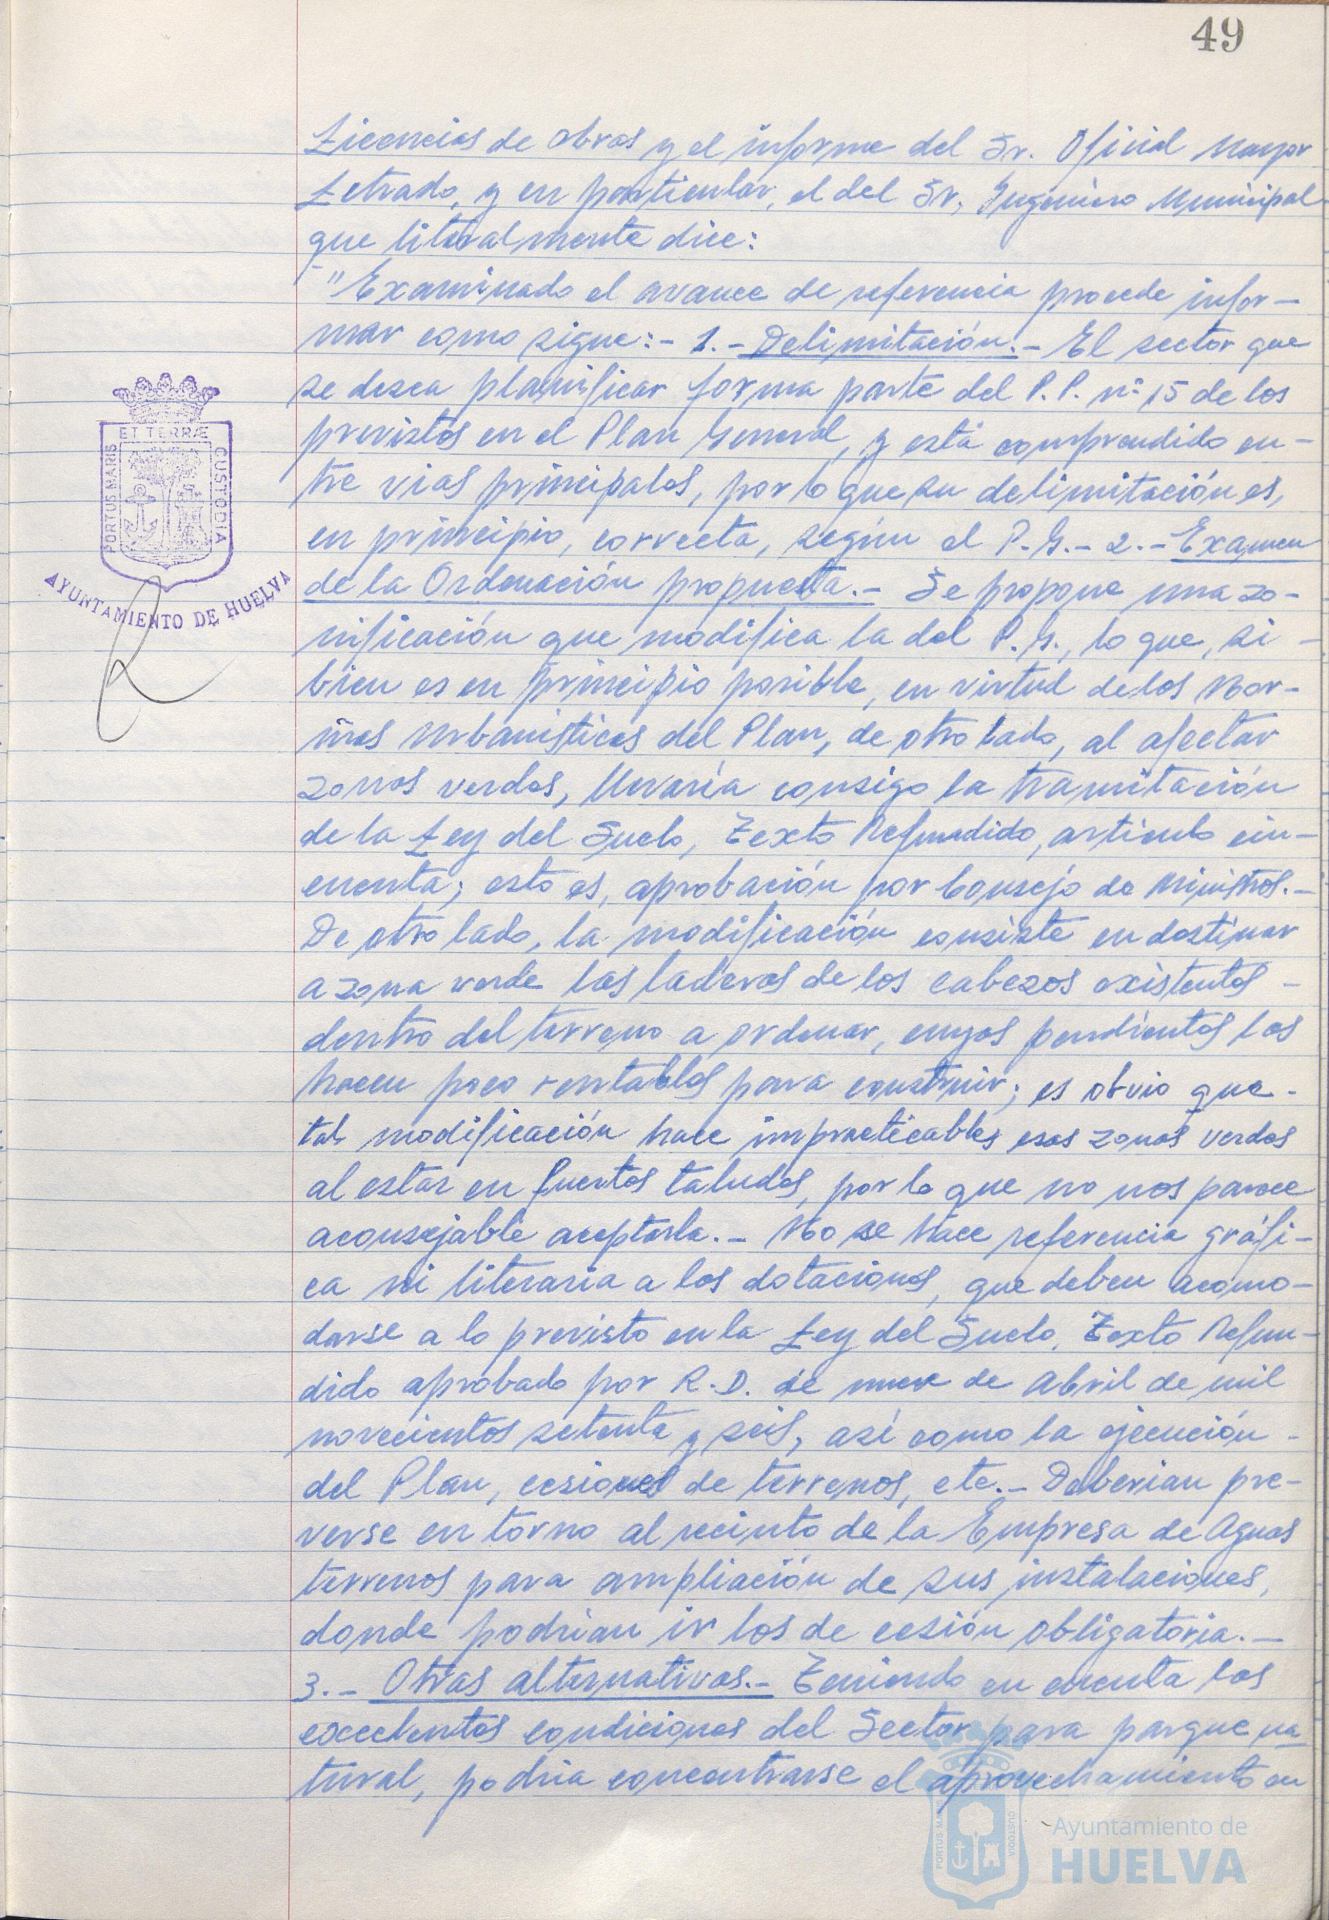 49
Licencias de obras y el informe del Sr. Oficial Mayor
Letrado, y en particular, el del Sr. Ingeniero Municipal
que literalmente dice:
"Examinado el avance de referencia procede infor-
mar como sigue:- 1.- Delimitación.- El sector que
se desea planificar forma parte del P.P. nº 15 de los
previstos en el Plan General, y está comprendido en-
tre vias principales, por lo que su delimitación es,
en principio, correcta, según el P.G.- 2.- Examen
de la Ordenación propuesta.- Se propone una zo-
nificación que modifica la del P.G., lo que, si
bien es en principio posible, en virtud de las Nor-
mas Urbanísticas del Plan, de otro lado, al afectar
zonas verdes, llevaría consigo la tramitación
de la Ley del Suelo, Texto Refundido, artículo cin-
cuenta; esto es, aprobación por Consejo de Ministros.-
De otro lado, la modificación consiste en destinar
a zona verde las laderas de los cabezos existentes -
dentro del terreno a ordenar, cuyas pendientes las
hacen poco rentables para construir; es obvio que -
tal modificación hace impracticables esas zonas verdes
al estar en fuertes taludes, por lo que no nos parece
aconsejable aceptarla.- No se hace referencia gráfi-
ca ni literaria a las dotaciones, que deben acomo-
darse a lo previsto en la Ley del Suelo, Texto Refun-
dido aprobado por R.D. de nueve de Abril de mil
novecientos setenta y seis, así como la ejecución -
del Plan, cesiones de terrenos, etc.- Deberían pre-
verse en torno al recinto de la Empresa de Aguas
terrenos para ampliación de sus instalaciones,
donde podrían ir los de cesión obligatoria.-
3.- Otras alternativas.- Teniendo en cuenta las
excelentes condiciones del Sector para parque na-
tural, podría concentrarse el aprovechamiento en
PORTUS MARIS ET TERRÆ CUSTODIA
AYUNTAMIENTO DE HUELVA
PORTUS MARIS
CUSTODIA
Ayuntamiento de
HUELVA